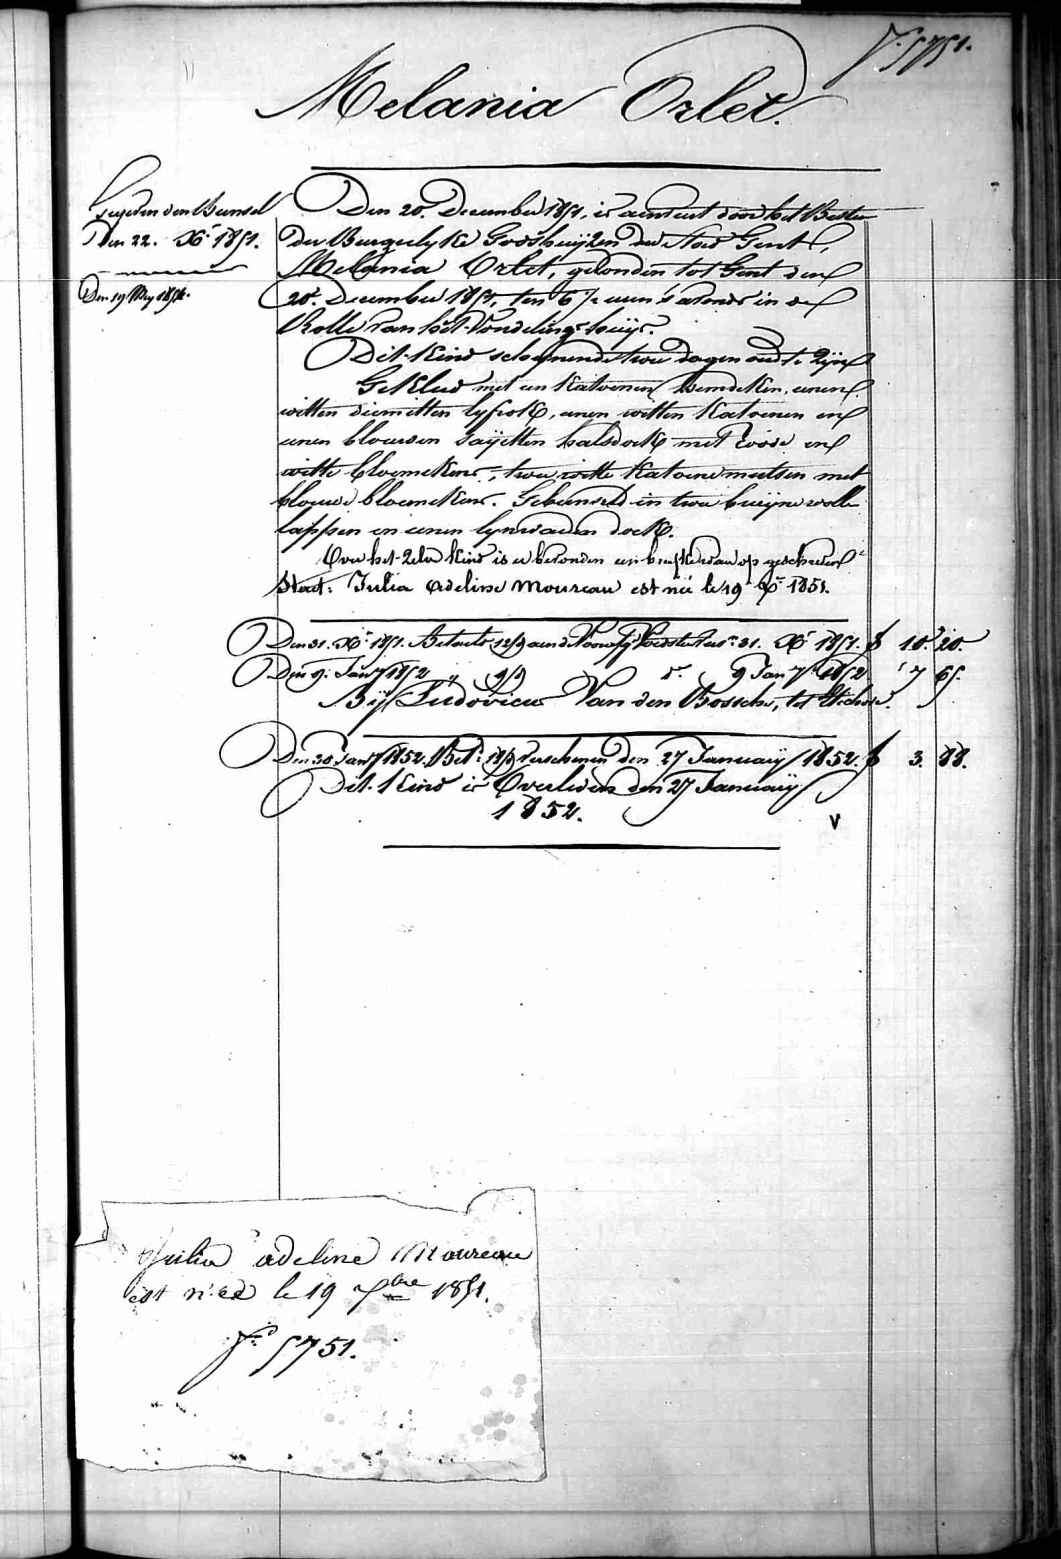 F.° 5751.
Melania Orlet.
den Bunsel
Den 22. Xbr 1851.
Den 19 Mey
Den 20. December 1851, is door het Bestier
der Burgerlyke Godshuijzen der Stad Gent,
Melania Orlet, gevonden tot Gent den
20.e December 1851, ten 6 ½ uren 's avonds in de
Rolle van het Vondelingshuijs.
Dit Kind schynende twee dagen oud te zijn
Gekleed met een Katoenen hemdeken, eenen
witten diemitten lyfrok, eenen witten Katoenen en
eenen blauwen sayetten halsdoek met Roode en
witte bloemekens, twee witte Katoene mutsen met
blauwe bloemekens. Gebunseld in twee bruijne wolle
lappen en eenen lynwaeden doek.
Over het zelve Kind is er bevonden een briefken waer op geschreven
Staet: Julia Adeline Moureau est née le 19 Xbr 1851.
Den 31. Xbr 1851. Betaelt 12/9 31. Xbr 1851. f 10. 20.
Den 9. Jany 1852 " 9/9 d.° 9 Jany 1852 " 7 65.
Bij Ludovicus Van den Bossche, tot
Den 30 Jany 1852 Bet. 18/9 verschenen den 27 January 1852. f 3. 88.
Dit Kind is Overleden den 27 January
1852.
V
Julia adeline Moureau
est née le 19 Xbre 1851.
F.° 5751.